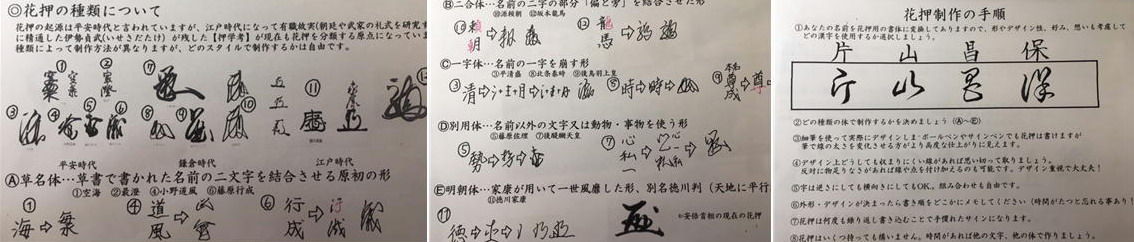 ◎花押の種類について
花押の起源は平安時代と言われていますが、江戸時代になって有職故実(朝廷や武家の礼式を研究す
に精通した伊勢貞武(いせさだたけ)が残した【押学考】が現在も花押を分類する原点になっていま
種類によって制作方法が異なりますが、どのスタイルで制作するかは自由です。
① ② ⑦ ⑪
③ ④ ⑤ ⑥ ⑧ ⑨ ⑩
平安時代 鎌倉時代 江戸時代
Ⓐ草名体…草書で書かれた名前の二文字を結合させる原初の形
①空海 ②最澄 ④小野道風 ⑥藤原行成
① 海⇨
④ 道風⇨
⑥ 行成⇨
Ⓑ二合体…名前の二字の部分「偏と旁」を結合させた形
⑩源頼朝 ⑫坂本龍馬
⑩ 頼朝⇨
⑫ 龍馬⇨
Ⓒ一字体…名前の一字を崩す形
③平清盛 ⑧北条泰時 ⑨後鳥羽上皇
③清⇨
⑧時⇨時⇨
⑨ 尊成⇨尊⇨
Ⓓ別用体…名前以外の文字又は動物・事物を使う形
⑤藤原佐理 ⑦後醍醐天皇
⑤勢⇨
⑦心私⇨
Ⓔ明朝体…家康が用いて一世風靡した形、別名徳川判(天地に平行
⑪徳川家康
⑪徳⇨
安倍首相の現在の花押
花押制作の手順
①あなたの名前を花押用の書体に変換してありますので、形やデザイン性、好み、想いも考慮して
どの漢字を使用するか選択しましょう。
片 山 昌 保
片 山 昌 保
②どの種類の体で制作するかを決めましょう(Ⓐ〜Ⓔ)
③細筆を使って実際にデザインしま・ボールペンやサインペンでも花押は書けますが
筆で線の太さを変化させる方がより高度な仕上がりに見えます。
④デザイン上どうしても収まりにくい線があれば思い切って取りましょう。
反対に物足りなさがあれば線や点を付け加えるのも可能です。デザイン重視で大丈夫!
⑤字は逆さにしても横向きにしてもOK。組み合わせも自由です。
⑥外形・デザインが決まったら書き順をどこかにメモしてください(時間がたつと忘れる事あり!
⑦花押は何度も繰り返し書き込むことで手慣れたサインになります。
⑧花押はいくつ持っても構いません。時間があれば他の文字、他の体で作りましょう。